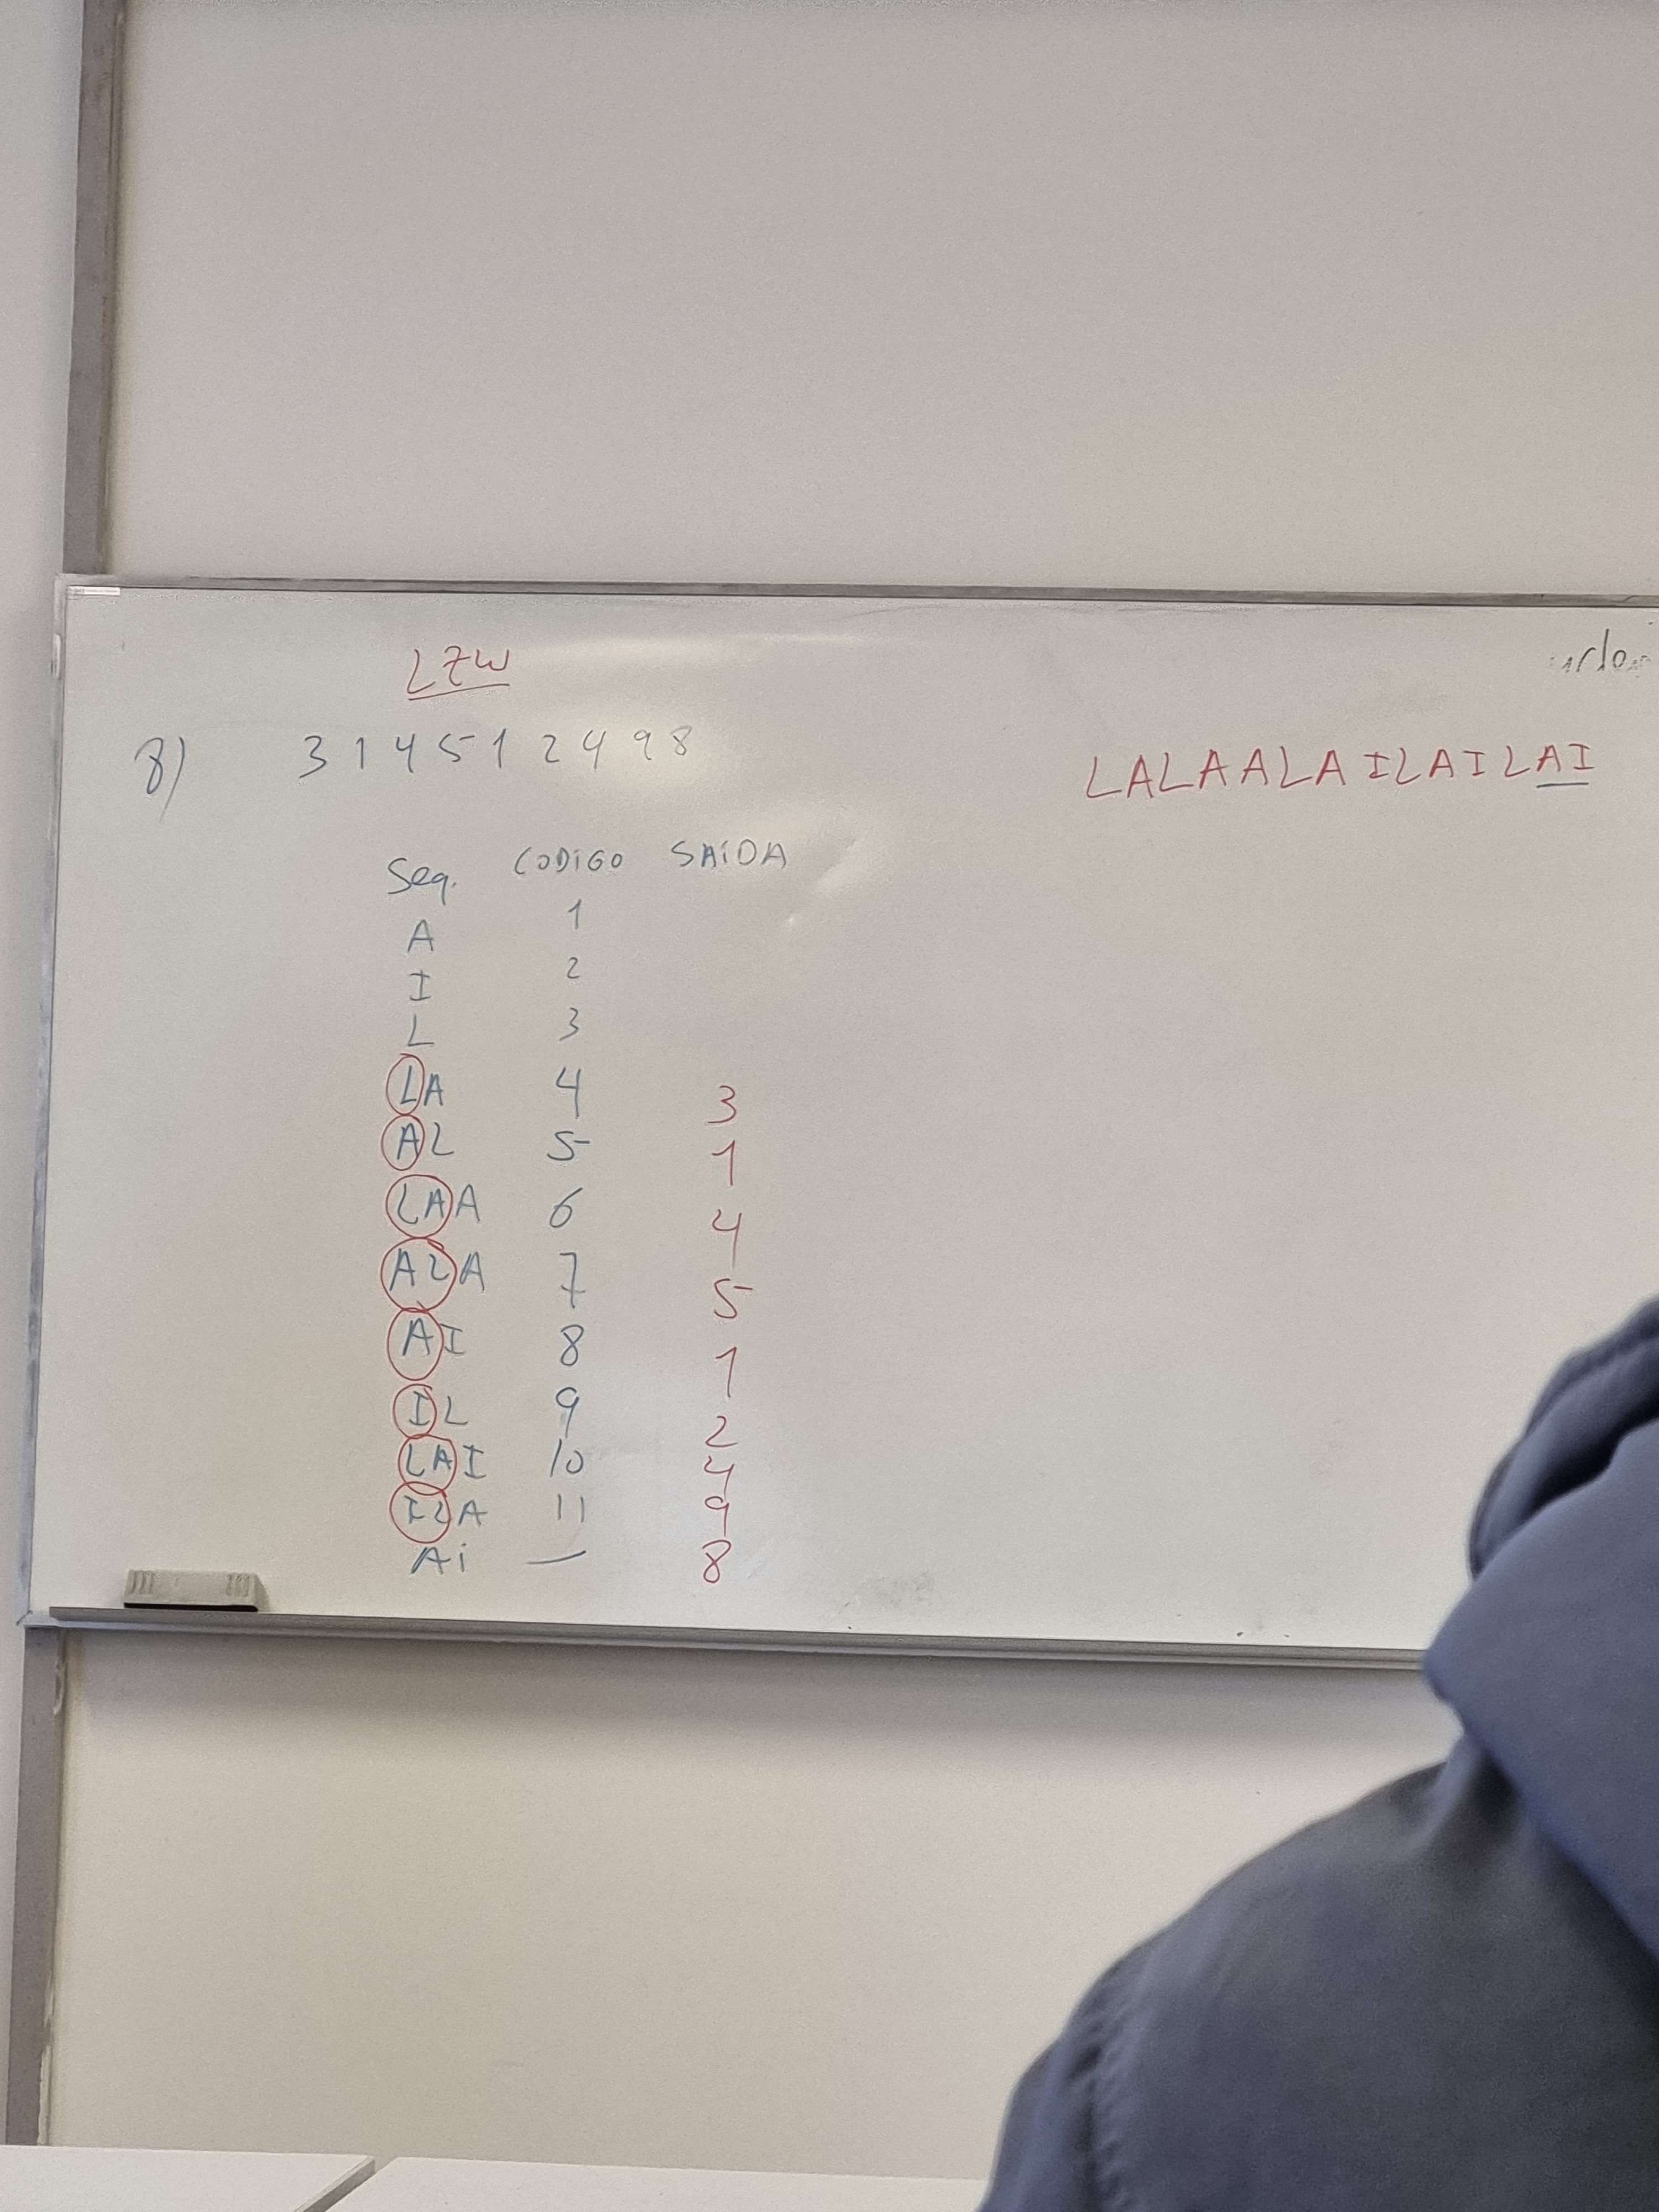 LZW
8) 3 1 4 5 1 2 4 9 8
LALAALAILAILAI
Seq. CODIGO SAIDA
A 1
I 2
L 3
LA 4 3
AL 5 1
LAA 6 4
ALA 7 5
AI 8 1
IL 9 2
LAI 10 4
ILA 11 9
Ai — 8